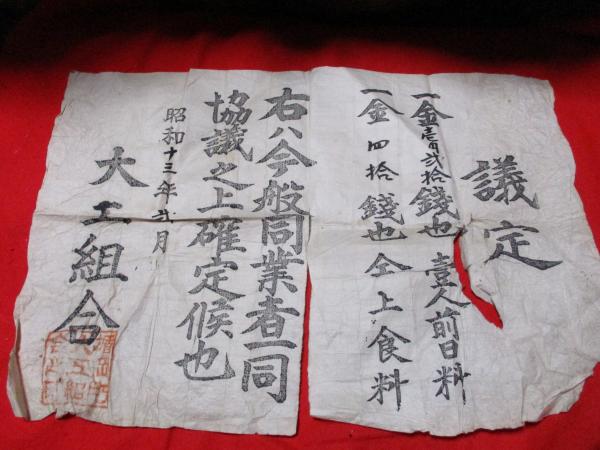 議定
一金壹円貳拾錢也 壹人前日料
一金四拾錢也 仝上食料
右ハ今般同業者一同
協議之上確定候也
昭和十三年貳月
大工組合